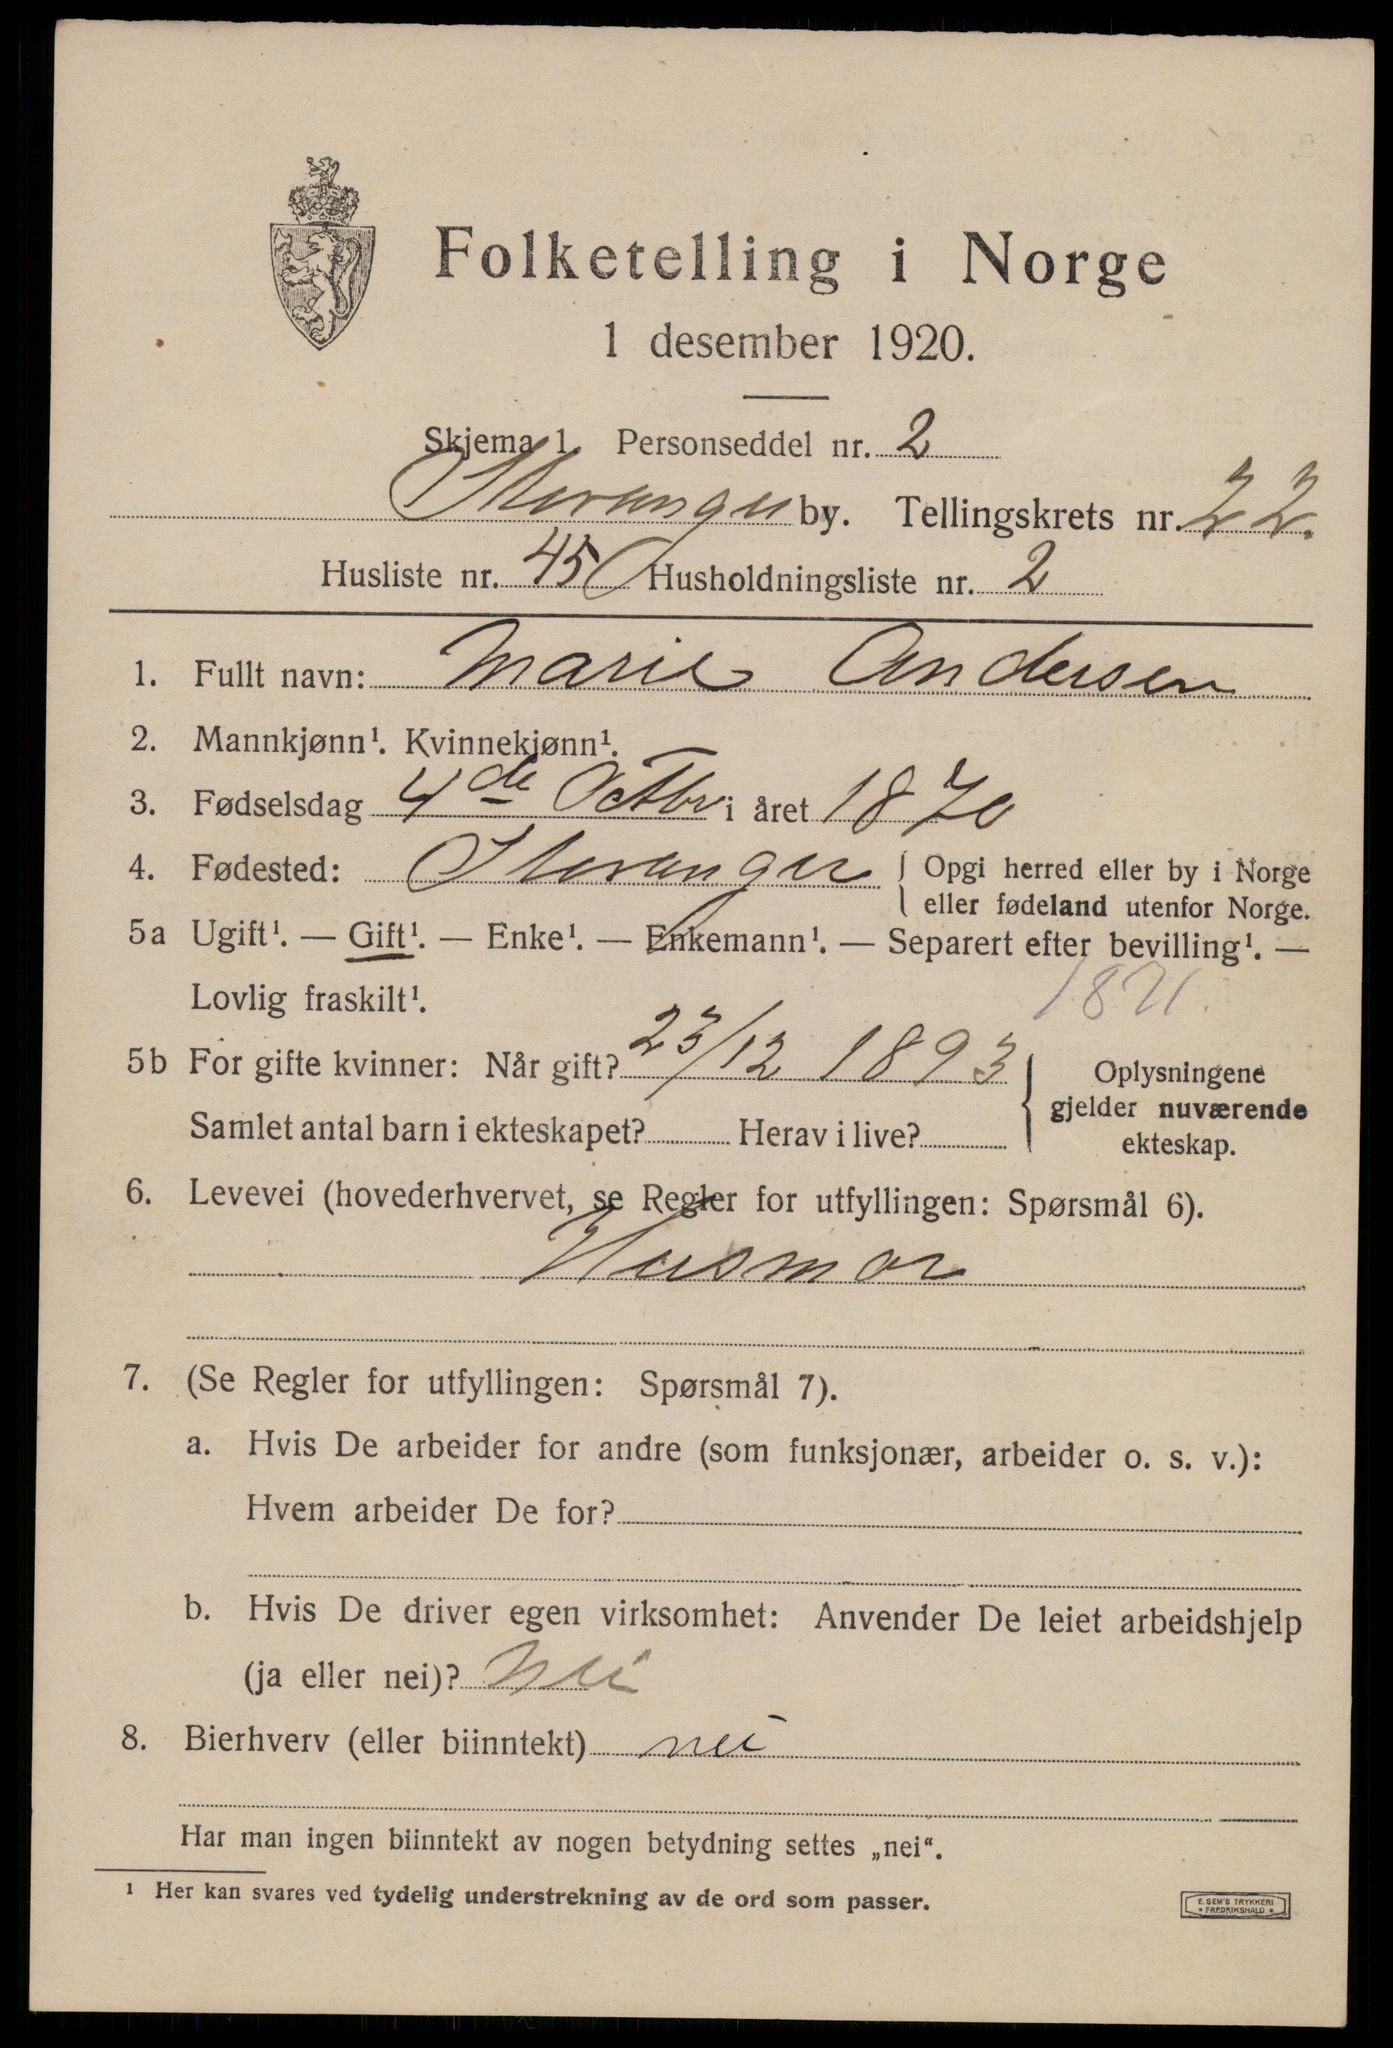 Folketelling i Norge
1 desember 1920.
Skjema 1 Personseddel nr. 2
Stavanger by. Tellingskrets nr. 22.
Husliste nr. 45 Husholdningsliste nr. 2
1. Fullt navn: Marie Andersen
2. Mannkjønn¹. Kvinnekjønn¹.
3. Fødselsdag 4de Octbr i året 1870
4. Fødested: Stavanger { Opgi herred eller by i Norge
eller fødeland utenfor Norge.
5a Ugift¹. — Gift¹. — Enke¹. — Enkemann¹. — Separert efter bevilling¹. —
Lovlig fraskilt¹. 1871.
5b For gifte kvinner: Når gift? 23/12 1893 { Oplysningene
gjelder nuværende
Samlet antal barn i ekteskapet? Herav i live?
ekteskap.
6. Levevei (hovederhvervet, se Regler for utfyllingen: Spørsmål 6).
Husmor
7. (Se Regler for utfyllingen: Spørsmål 7).
a. Hvis De arbeider for andre (som funksjonær, arbeider o. s. v.):
Hvem arbeider De for?
b. Hvis De driver egen virksomhet: Anvender De leiet arbeidshjelp
(ja eller nei)? Nei
8. Bierhverv (eller biinntekt) nei
Har man ingen biinntekt av nogen betydning settes „nei“.
¹ Her kan svares ved tydelig understrekning av de ord som passer.
E. SEM'S TRYKKERI
* FREDRIKSHALD *